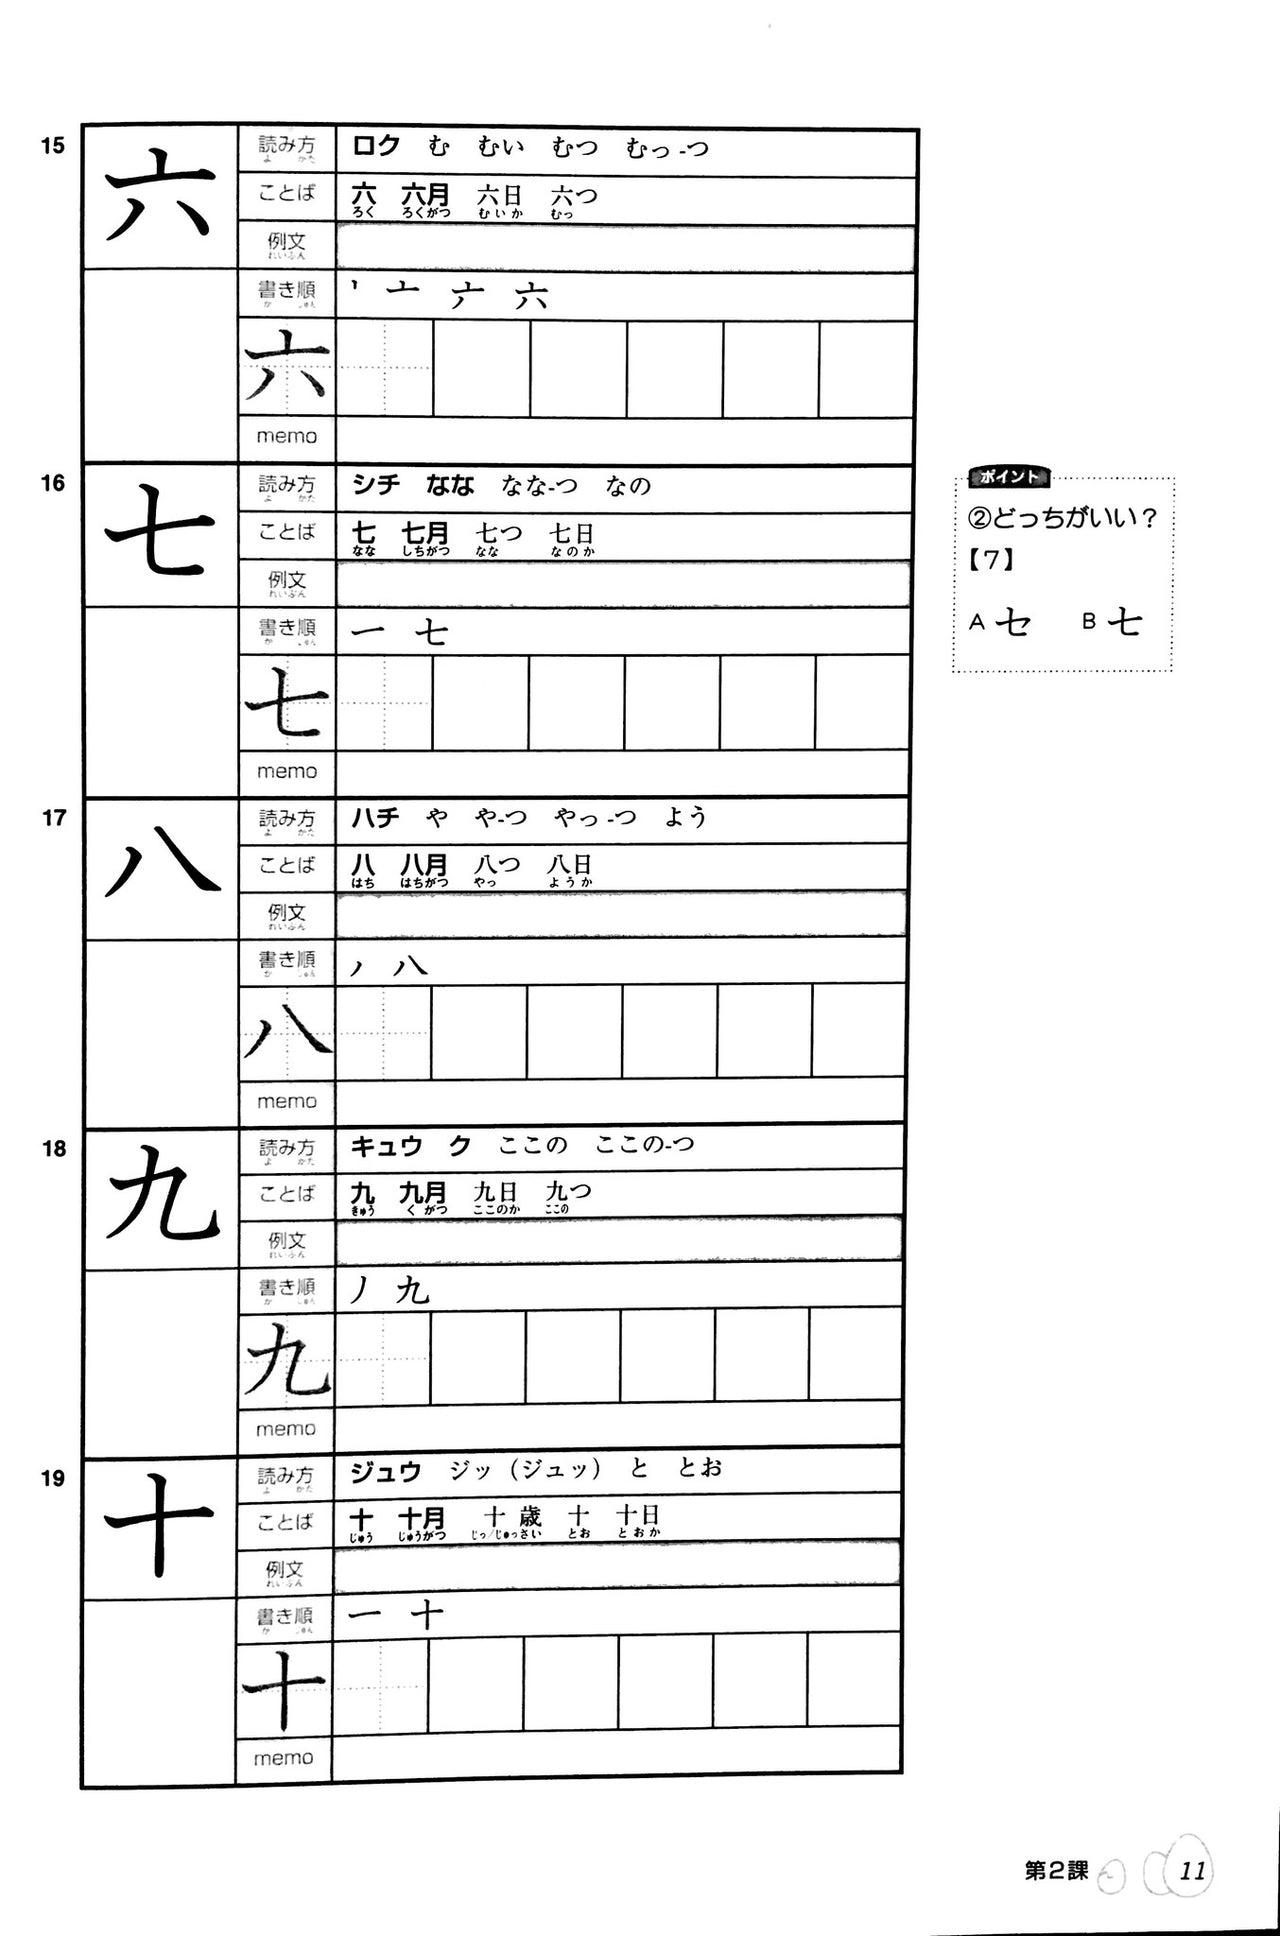 15
六
読み方 ロク む むい むつ むっ-つ
よ かた
ことば 六 六月 六日 六つ
ろく ろくがつ むいか むっ
例文
れいぶん
書き順 丶 亠 六
か しゅん
六
memo
16
七
読み方 シチ なな なな-つ なの
よ かた
ことば 七 七月 七つ 七日
なな しちがつ なな なのか
例文
れいぶん
書き順 一 七
か しゅん
七
memo
17
八
読み方 ハチ や や-つ やっ-つ よう
よ かた
ことば 八 八月 八つ 八日
はち はちがつ やっ ようか
例文
れいぶん
書き順 ノ 八
か しゅん
八
memo
18
九
読み方 キュウ ク ここの ここの-つ
よ かた
ことば 九 九月 九日 九つ
きゅう くがつ ここのか ここの
例文
れいぶん
書き順 ノ 九
か しゅん
九
memo
19
十
読み方 ジュウ ジッ（ジュッ） と とお
よ かた
ことば 十 十月 十歳 十 十日
じゅう じゅうがつ じっ/じゅっさい とお とおか
例文
れいぶん
書き順 一 十
か しゅん
十
memo
ポイント
②どっちがいい？
【7】
A セ B 七
第2課 11